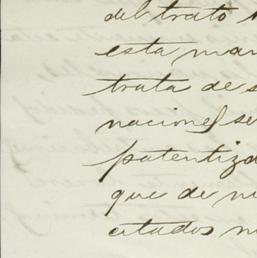 del trato
esta man
trata de s
naciones se
patentiza
que de n
citados n